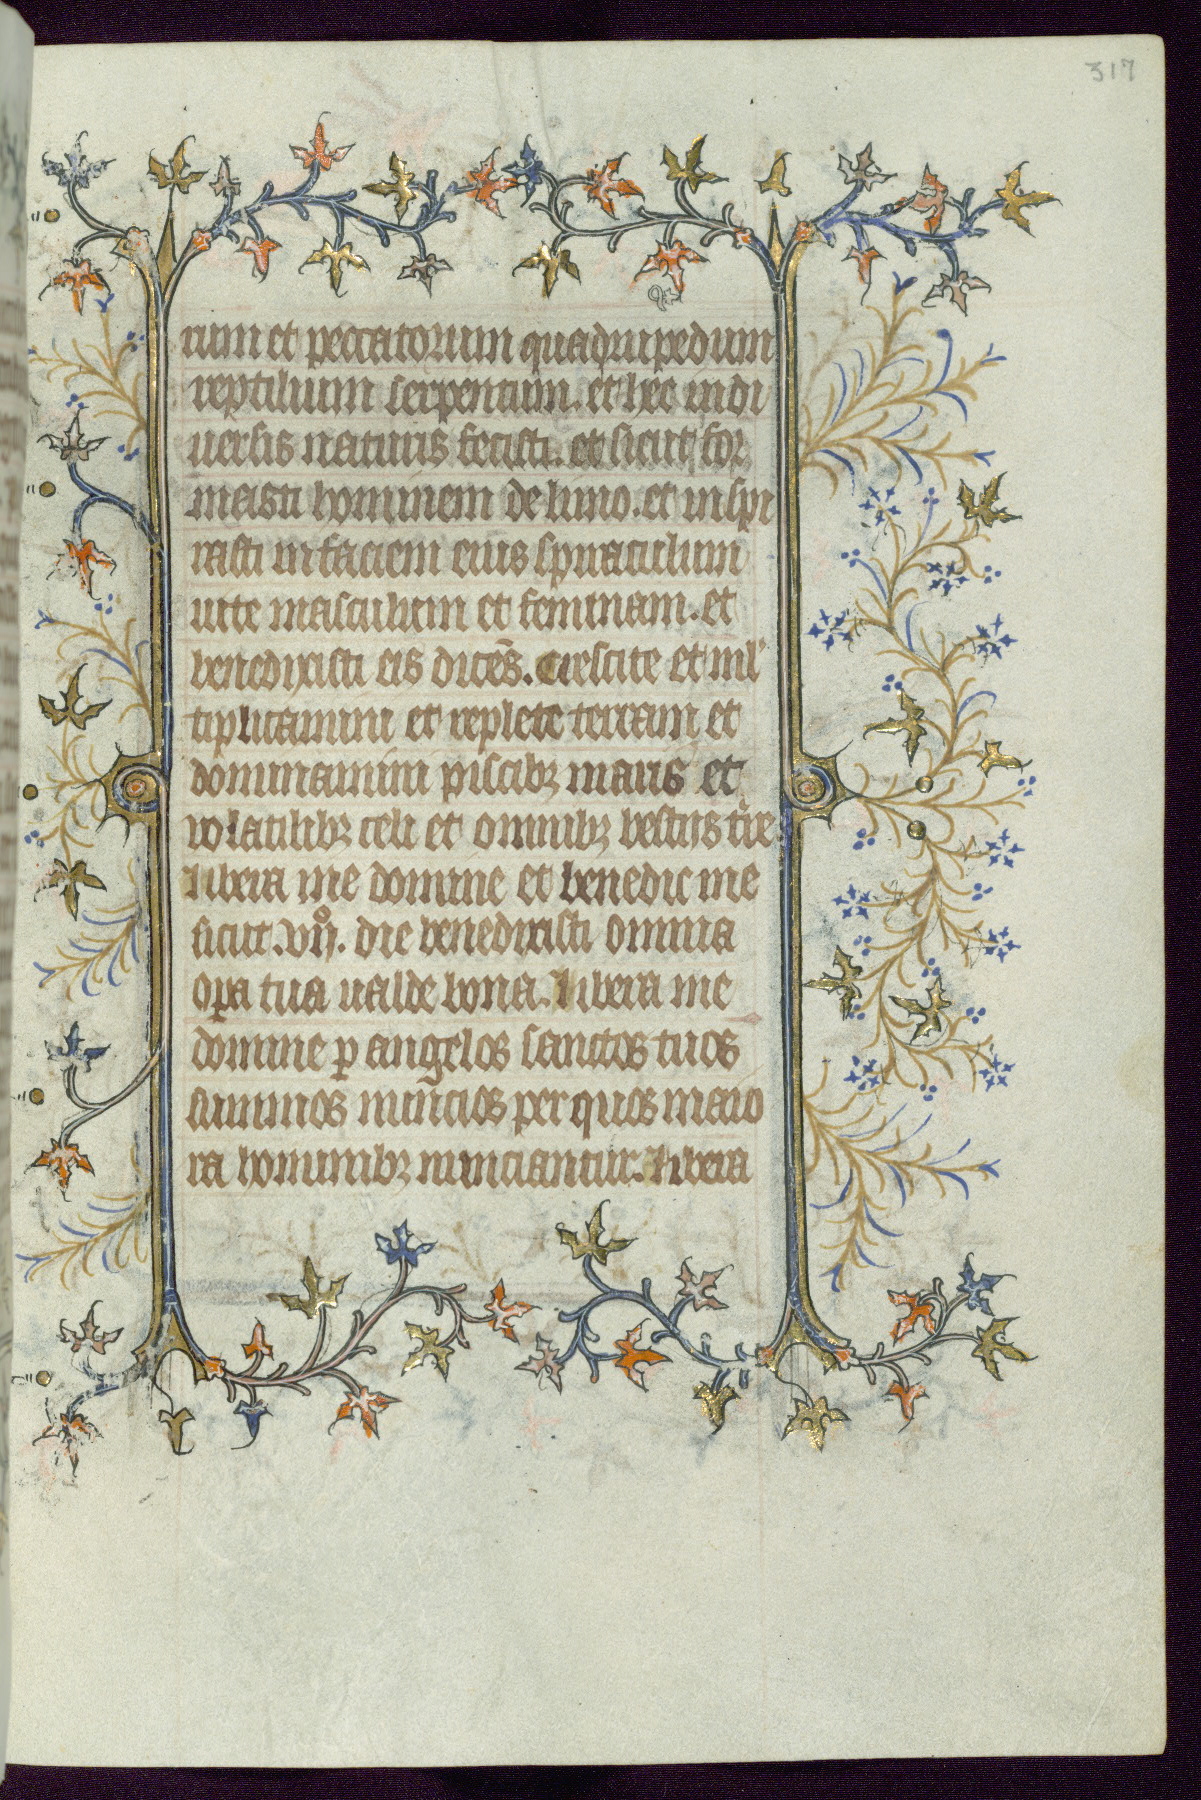 317
rum et peccatorum quadrupedum
reptilium serpentium. et hec in di
uersis naturis fecisti. et sicut for
masti hominem de limo. et inspi
rasti in faciem eius spiraculum
uite masculum et feminam. et
benedixisti eis dicẽs. Crescite et ml'
tiplicamini et replete terram et
dominamini piscibꝫ maris et
volatilibꝫ celi et omnibꝫ bestiis t̃re
Libera me domine et benedic me
sicut .vijº. die benedixisti omnia
oꝑa tua ualde bona. Libera me
domine ꝑ angelos sanctos tuos
summos nuncios per quos maio
ra hominibꝫ nunciantur. Libera